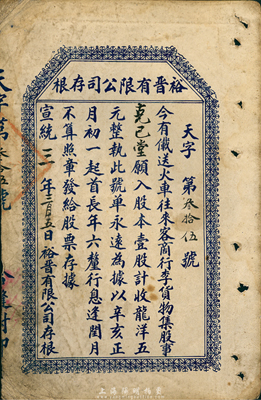 裕晋有限公司存根
天字 第叁拾伍號
今有儎送火車往來客商行李貨物集股事
克己堂願入股本壹股計收龍洋五
元整執此號单永遠為據以辛亥正
月初一起首長年六釐行息逢閏月
不算照章發給股票存據
宣統三年二月五日裕晋有限公司存根
天字第叁拾伍號